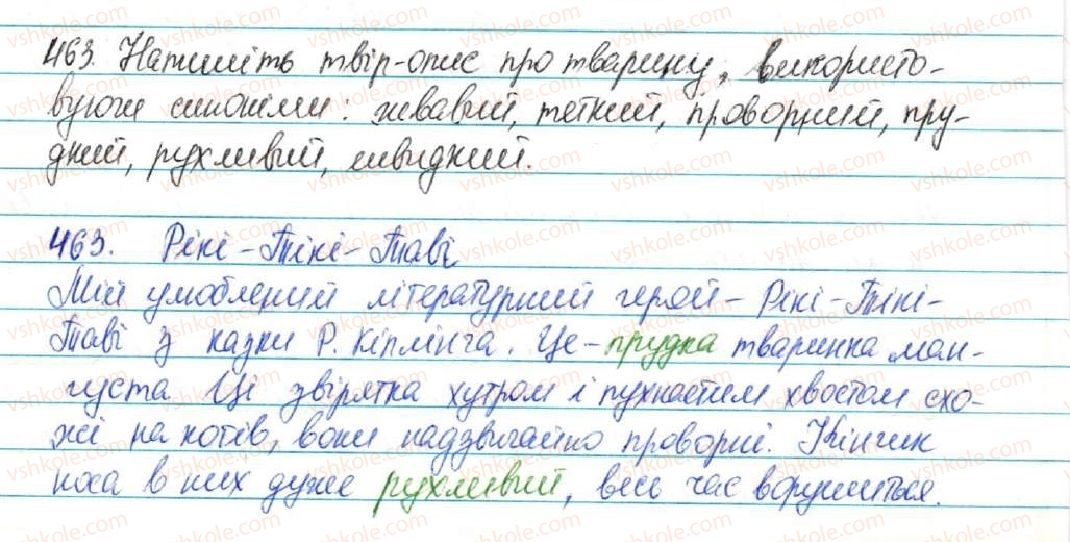 463. Напишіть твір-опис про тварину, використо-
вуючи синоніми: жвавий, меткий, проворний, пру-
дкий, рухливий, швидкий.
463. Рікі-Тікі-Таві
Мій улюблений літературний герой - Рікі-Тікі-
Таві з казки Р. Кіплінга. Це - прудка тваринка ман-
густа. Ці звірятка хутром і пухнастим хвостом схо-
жі на котів, вони надзвичайно проворні. Кінчик
носа в них дуже рухливий, весь час ворушиться.